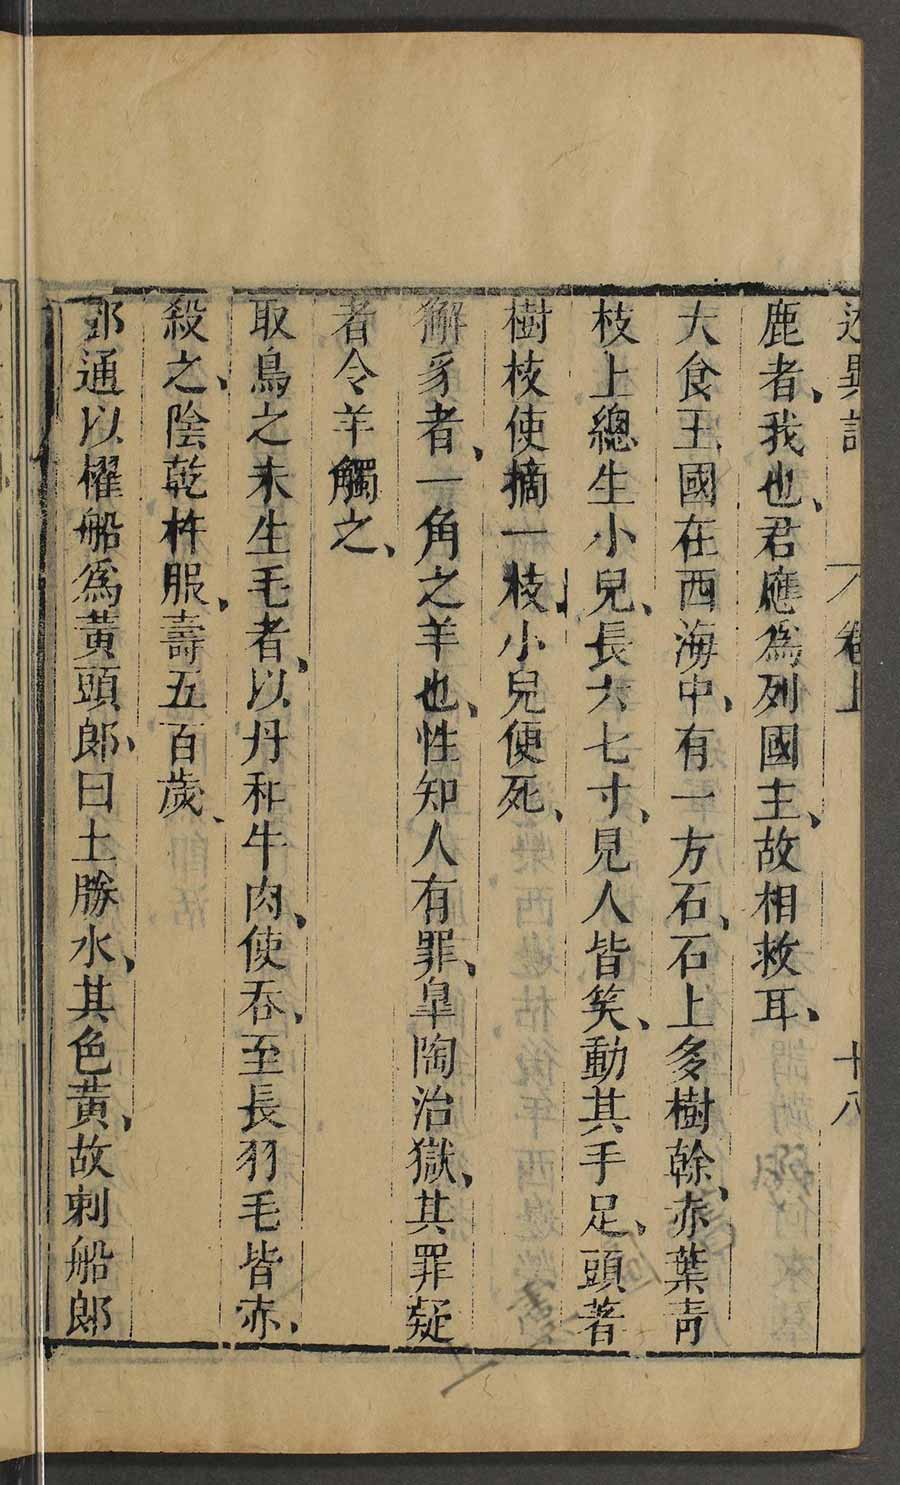 述異記 卷上 十八
鹿者、我也、君應爲列國主、故相救耳、
大食王國在西海中、有一方石、石上多樹幹、赤葉青
枝上總生小兒、長六七寸、見人皆笑、動其手足、頭著
樹枝使摘一枝、小兒便死、
獬豸者、一角之羊也、性知人有罪、皐陶治獄、其罪疑
者令羊觸之、
取鳥之未生毛者、以丹和牛肉、使吞、至長羽毛皆赤、
殺之、陰乾杵服、壽五百歲、
鄧通以櫂船爲黃頭郎、曰土勝水、其色黃、故刺船郎